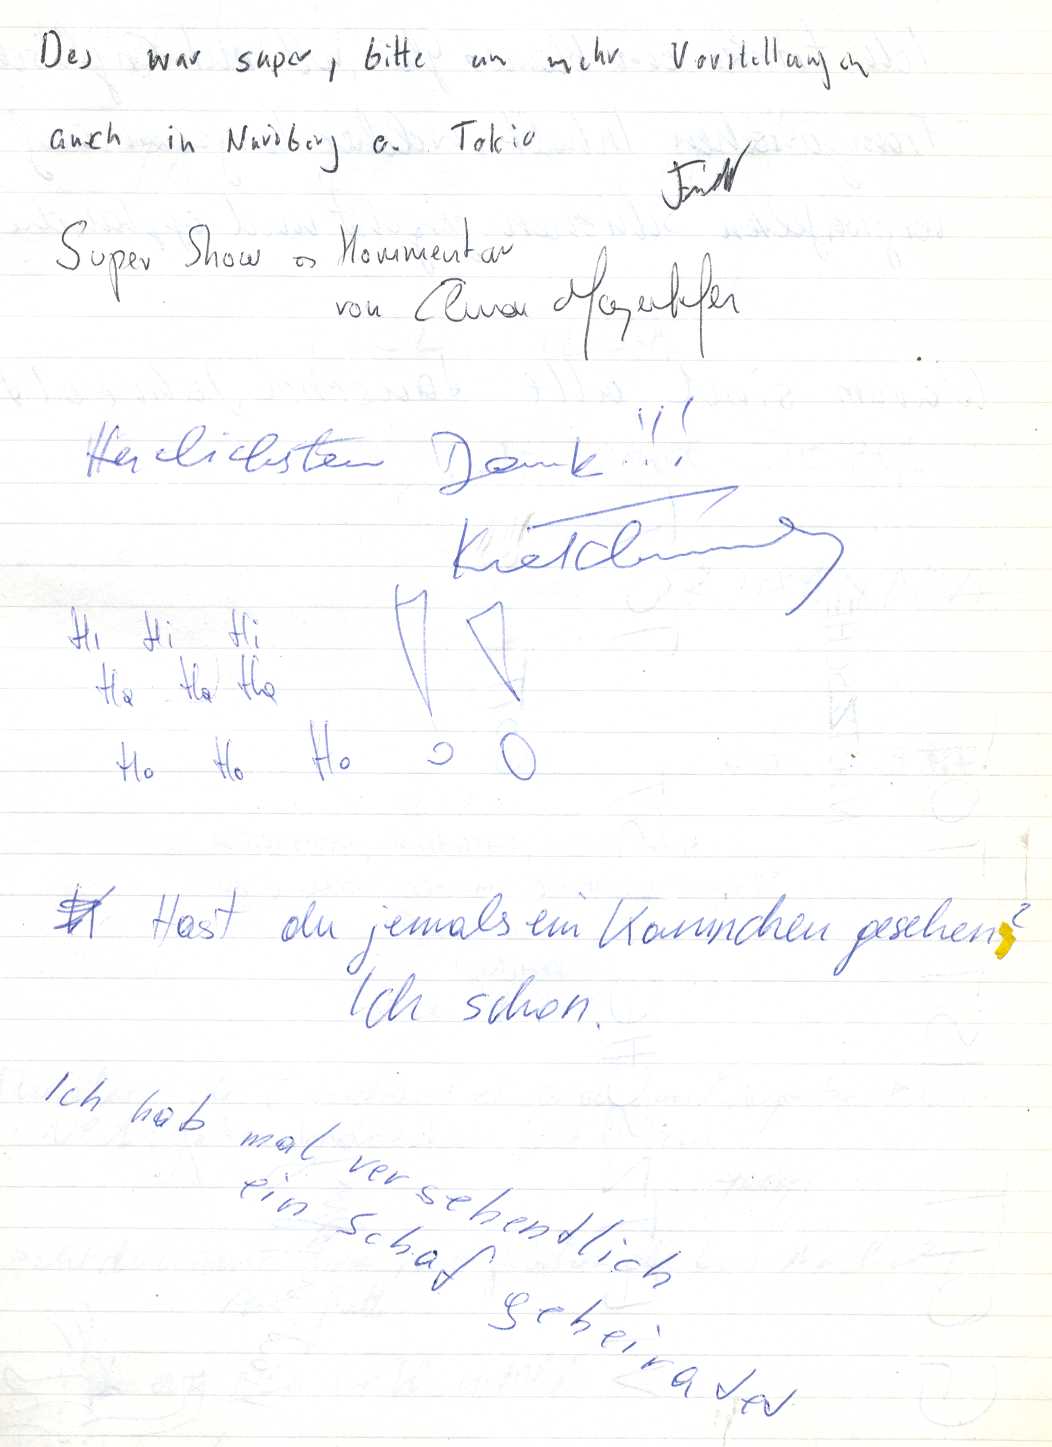 Des war super, bitte um mehr Vorstellungen
auch in Nürnberg o. Tokio
Super Show Kommentar
von
Herzlichsten Dank!!!
Hi Hi Hi
Ha Ha Ha
Ho Ho Ho !!
Hast du jemals ein Kaninchen gesehen?
Ich schon.
Ich hab mal versehentlich
ein Schaf geheiratet